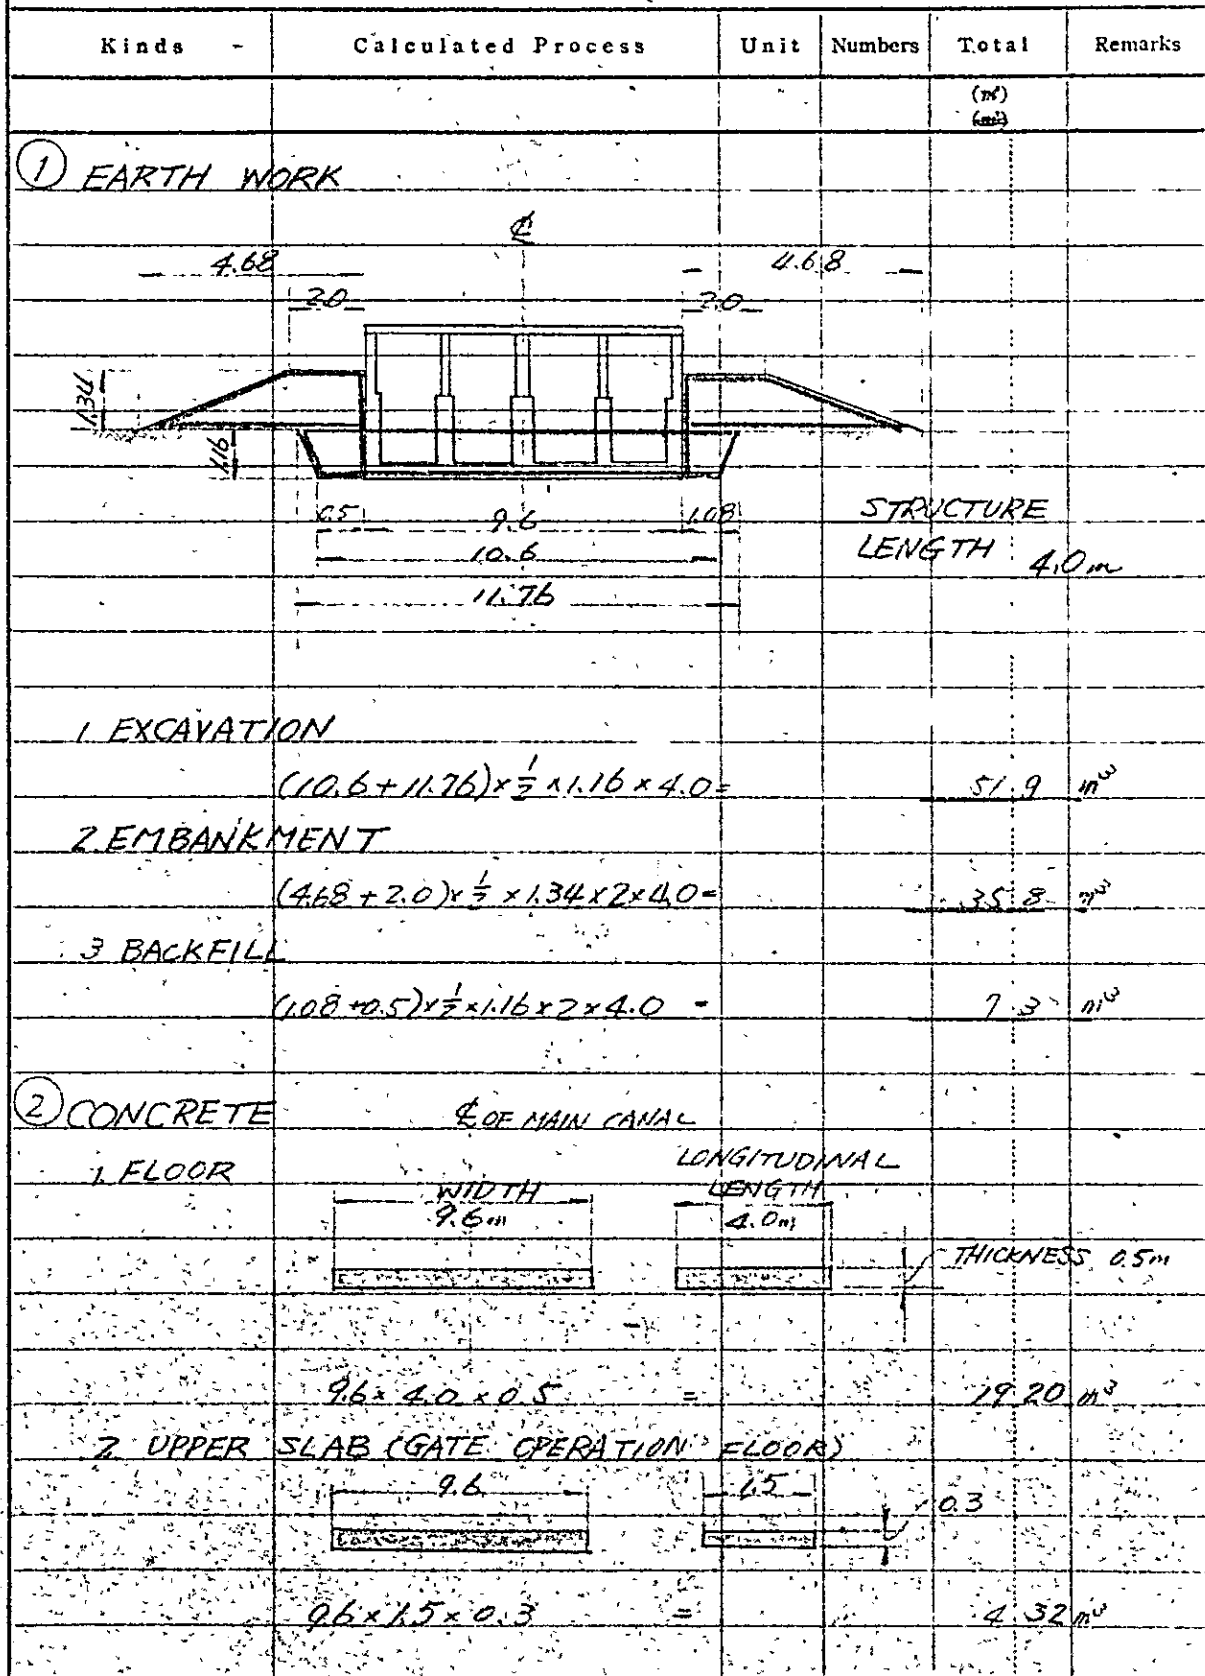 Kinds - Calculated Process Unit Numbers Total Remarks
(m³)
① EARTH WORK
℄
4.68 4.68
2.0 2.0
1.34
1.16
0.5 9.6 1.08
10.6
11.76
STRUCTURE
LENGTH 4.0m
1. EXCAVATION
(10.6 + 11.76) × 1/2 × 1.16 × 4.0 = 51.9 m³
2. EMBANKMENT
(4.68 + 2.0) × 1/2 × 1.34 × 2 × 4.0 = 35.8 m³
3 BACKFILL
(1.08 + 0.5) × 1/2 × 1.16 × 2 × 4.0 = 7.3 m³
② CONCRETE ℄ OF MAIN CANAL
1. FLOOR
WIDTH
9.6m
LONGITUDINAL
LENGTH
4.0m
THICKNESS 0.5m
9.6 × 4.0 × 0.5 = 19.20 m³
2. UPPER SLAB (GATE OPERATION FLOOR)
9.6 1.5 0.3
9.6 × 1.5 × 0.3 = 4.32 m³